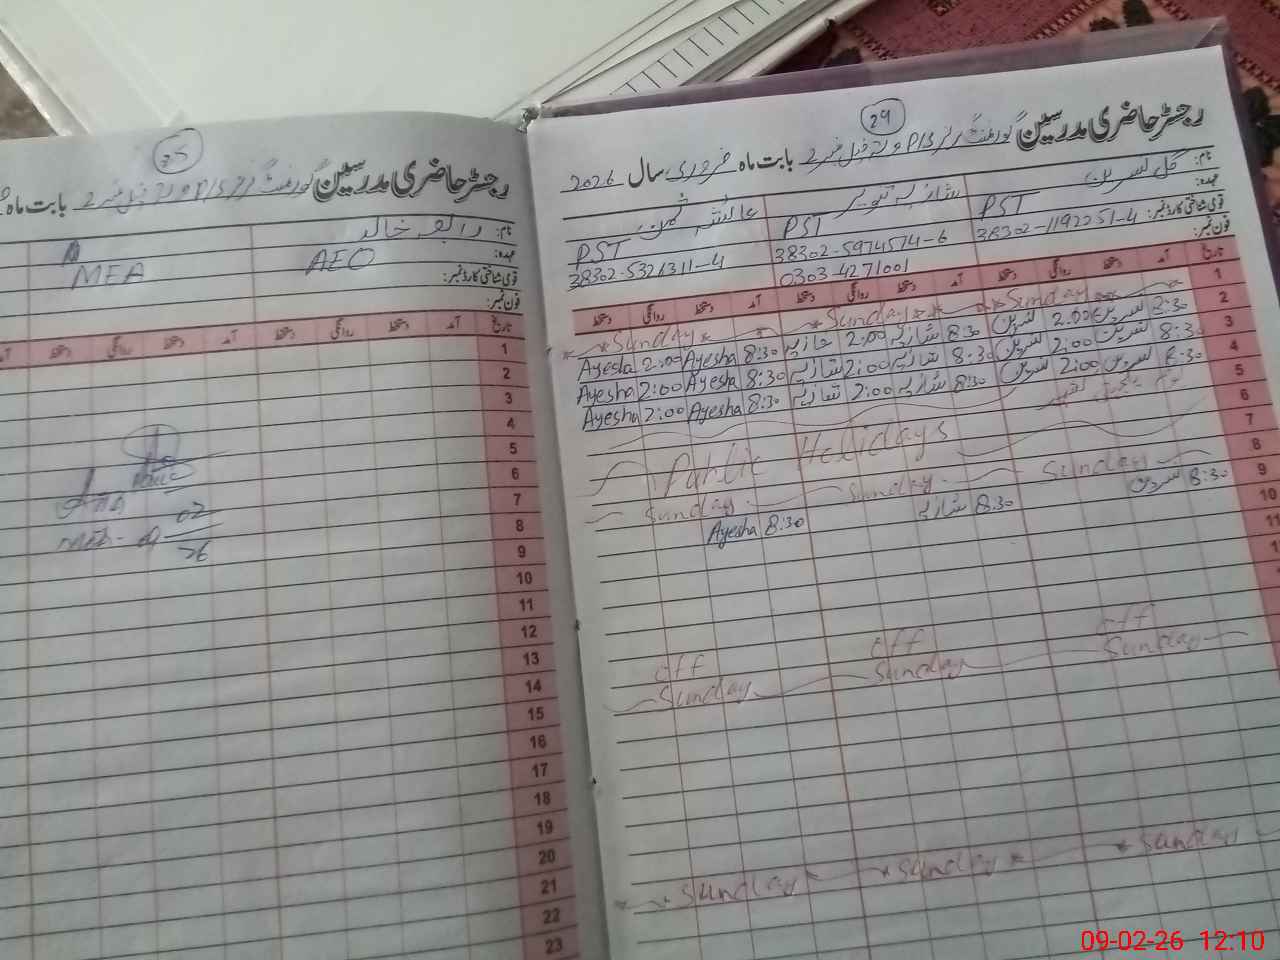 25
رجسٹر حاضری مدرسین گورنمنٹ بابت ماہ
نام: رابعہ خالد
عہدہ: AEO MEA
قومی شناختی کارڈ نمبر:
فون نمبر:
تاریخ آمد دستخط روانگی دستخط آمد دستخط روانگی دستخط آمد
1
2
3
4
5
6
7
8
9
10
11
12
13
14
15
16
17
18
19
20
21
22
23
09 02 26
29
رجسٹر حاضری مدرسین گورنمنٹ بابت ماہ فروری سال 2026
نام: گل نسرین شازیہ تنویر عائشہ
عہدہ: PST PST PST
قومی شناختی کارڈ نمبر: 38302-1192251-4 38302-5974574-6 38302-5321311-4
فون نمبر: 0303-4271001
تاریخ آمد دستخط روانگی دستخط آمد دستخط روانگی دستخط آمد دستخط روانگی دستخط
1 Sunday Sunday Sunday
2 8:30 نسرین 2:00 نسرین 8:30 شازیہ 2:00 شازیہ 8:30 Ayesha 2:00 Ayesha
3 8:30 نسرین 2:00 نسرین 8:30 شازیہ 2:00 شازیہ 8:30 Ayesha 2:00 Ayesha
4 8:30 نسرین 2:00 نسرین 8:30 شازیہ 2:00 شازیہ 8:30 Ayesha 2:00 Ayesha
5 یوم یکجہتی کشمیر
6
7 Public Holidays
8 Sunday Sunday Sunday
9 8:30 نسرین 8:30 شازیہ 8:30 Ayesha
10
11
off off off
Sunday Sunday Sunday
Sunday Sunday Sunday
09-02-26 12:10